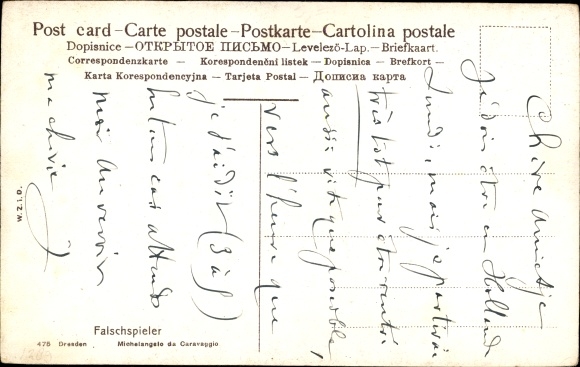 Post card – Carte postale – Postkarte – Cartolina postale
Dopisnice – ОТКРЫТОЕ ПИСЬМО – Levelező-Lap. – Briefkaart.
Correspondenzkarte – Korespondenční listek – Dopisnica – Brefkort –
Karta Korespondencyjna – Tarjeta Postal – Дописна карта
Chère
Je dois être en Holland
Lundi, mais je partirai
très tôt pour être rentré
aussi vite que possible,
vers l'heure que
je t'ai dit (3 à 5)
attends
moi. Au revoir
ma chérie
W.Z.I.D.
Falschspieler
475 Dresden Michelangelo da Caravaggio